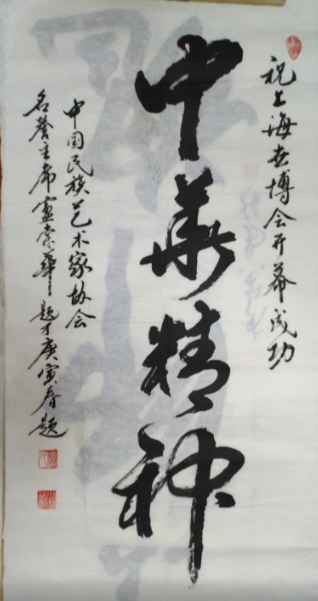 祝上海世博会开幕成功
中華精神
中国民族艺术家协会
名誉主席宣崇華题于庚寅春题